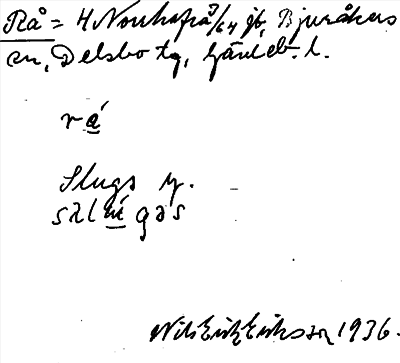 Rå = 4 Norrhafrå 3/64 jb, Bjuråkers
sn, Delsbo tg, Gävleb. l.
rá
Slugs y.
sƨlúgəs
Nils Erik Eriksson 1936.